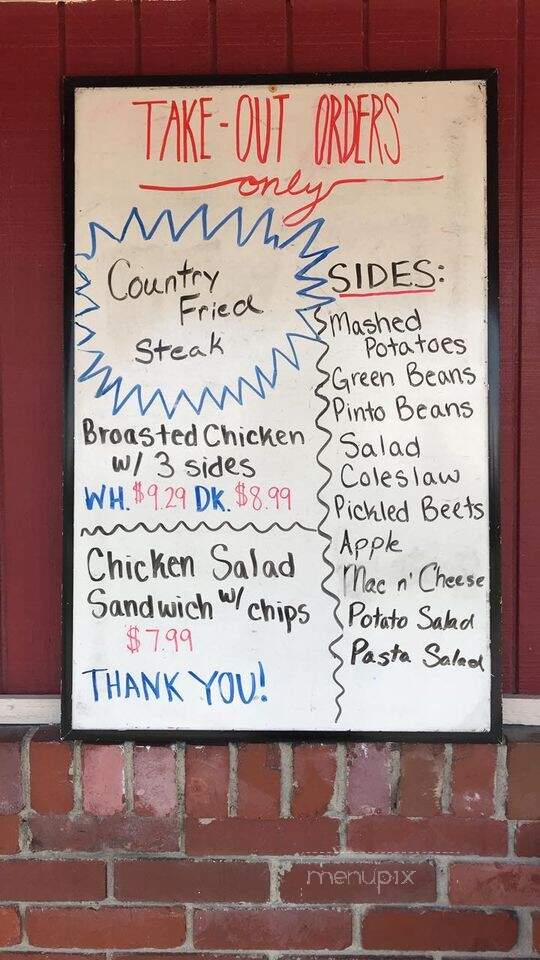 TAKE-OUT ORDERS
only
Country
Fried
Steak
Broasted Chicken
w/ 3 sides
WH. $9.29 DK. $8.99
Chicken Salad
Sandwich w/ chips
$7.99
THANK YOU!
SIDES:
Mashed
Potatoes
Green Beans
Pinto Beans
Salad
Coleslaw
Pickled Beets
Apple
Mac n' Cheese
Potato Salad
Pasta Salad
menupix